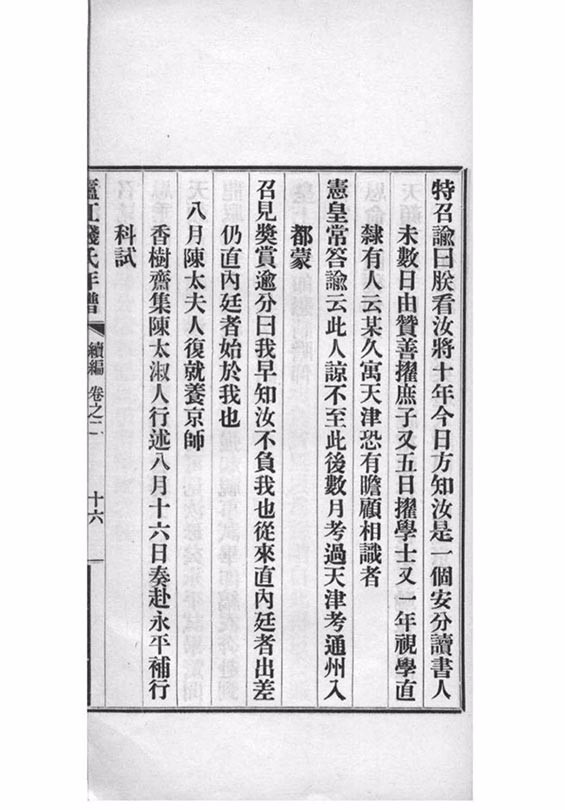 特召諭曰朕看汝將十年今日方知汝是一個安分讀書人
未數日由贊善擢庶子又五日擢學士又一年視學直
隸有人云某久寓天津恐有瞻顧相識者
憲皇常答諭云此人諒不至此後數月考過天津考通州入
都蒙
召見獎賞逾分曰我早知汝不負我也從來直內廷者出差
仍直內廷者始於我也
八月陳太夫人復就養京師
香樹齋集陳太淑人行述八月十六日奏赴永平補行
科試
廬江錢氏年譜 續編 卷之二 十六